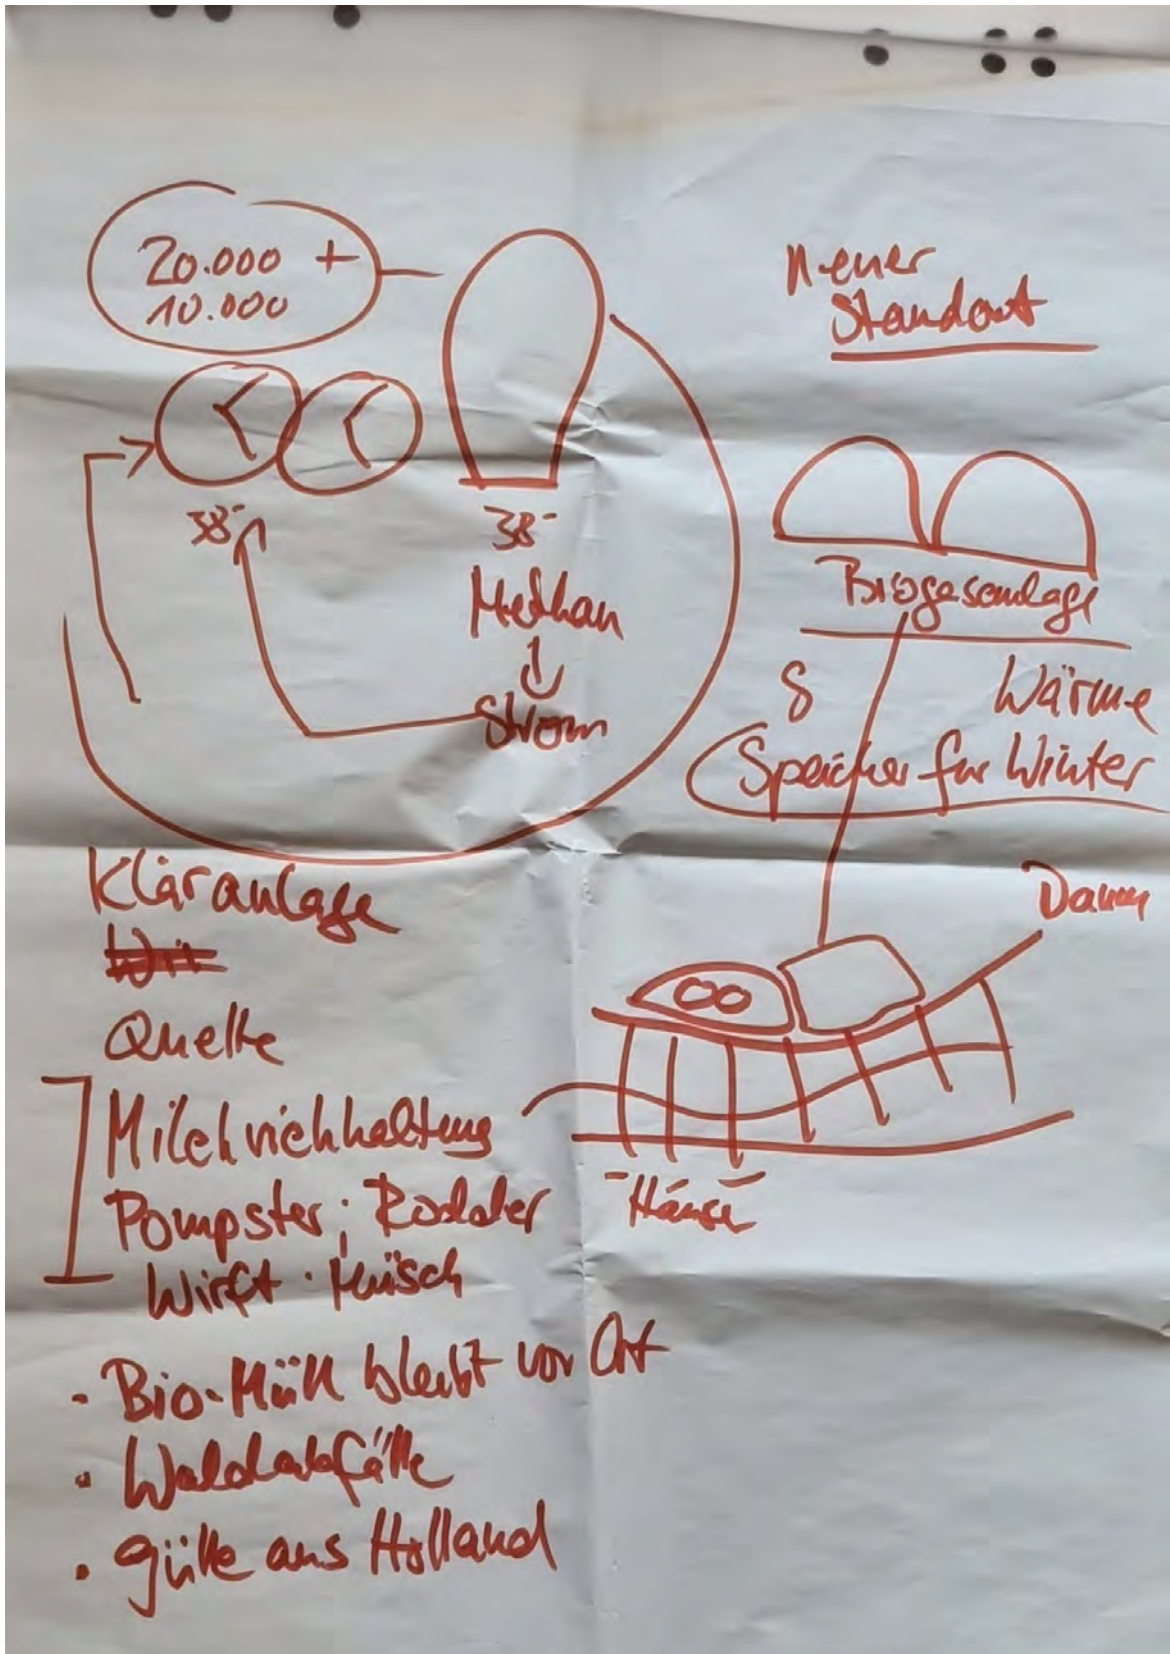 20.000 +
10.000
38°
38°
Methan
Strom
Kläranlage
Quelle
Milchviehhaltung
Pompster; Rodder
Wirft · Müsch
· Bio-Müll bleibt vor Ort
· Waldabfälle
· Gülle aus Holland
Neuer
Standort
Biogasanlage
Wärme
Speicher für Winter
Damm